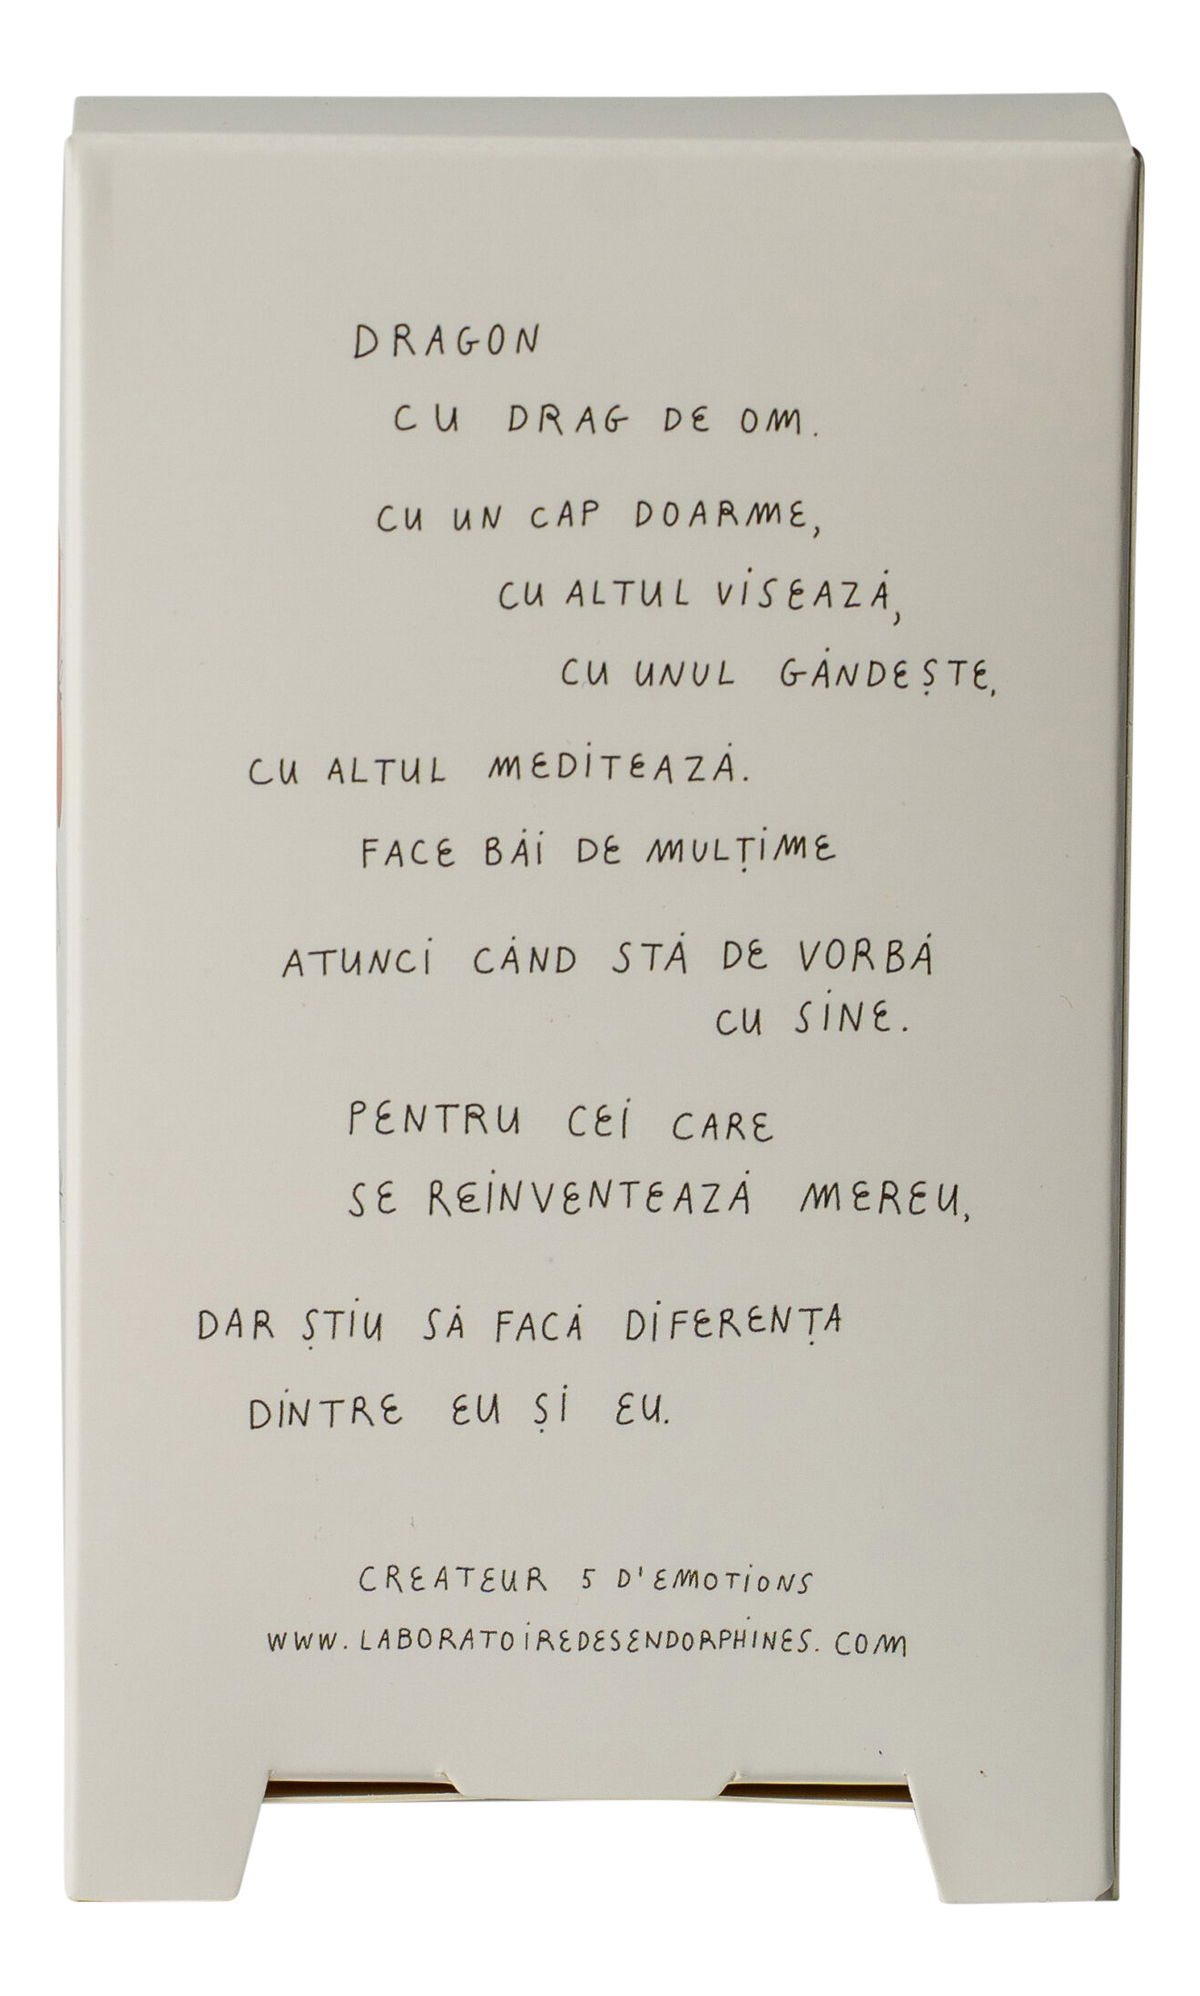 DRAGON
CU DRAG DE OM.
CU UN CAP DOARME,
CU ALTUL VISEAZĂ,
CU UNUL GÂNDEȘTE,
CU ALTUL MEDITEAZĂ.
FACE BĂI DE MULȚIME
ATUNCI CÂND STĂ DE VORBĂ
CU SINE.
PENTRU CEI CARE
SE REINVENTEAZĂ MEREU,
DAR ȘTIU SĂ FACĂ DIFERENȚA
DINTRE EU ȘI EU.
CREATEUR 5 D'EMOTIONS
WWW.LABORATOIREDESENDORPHINES.COM